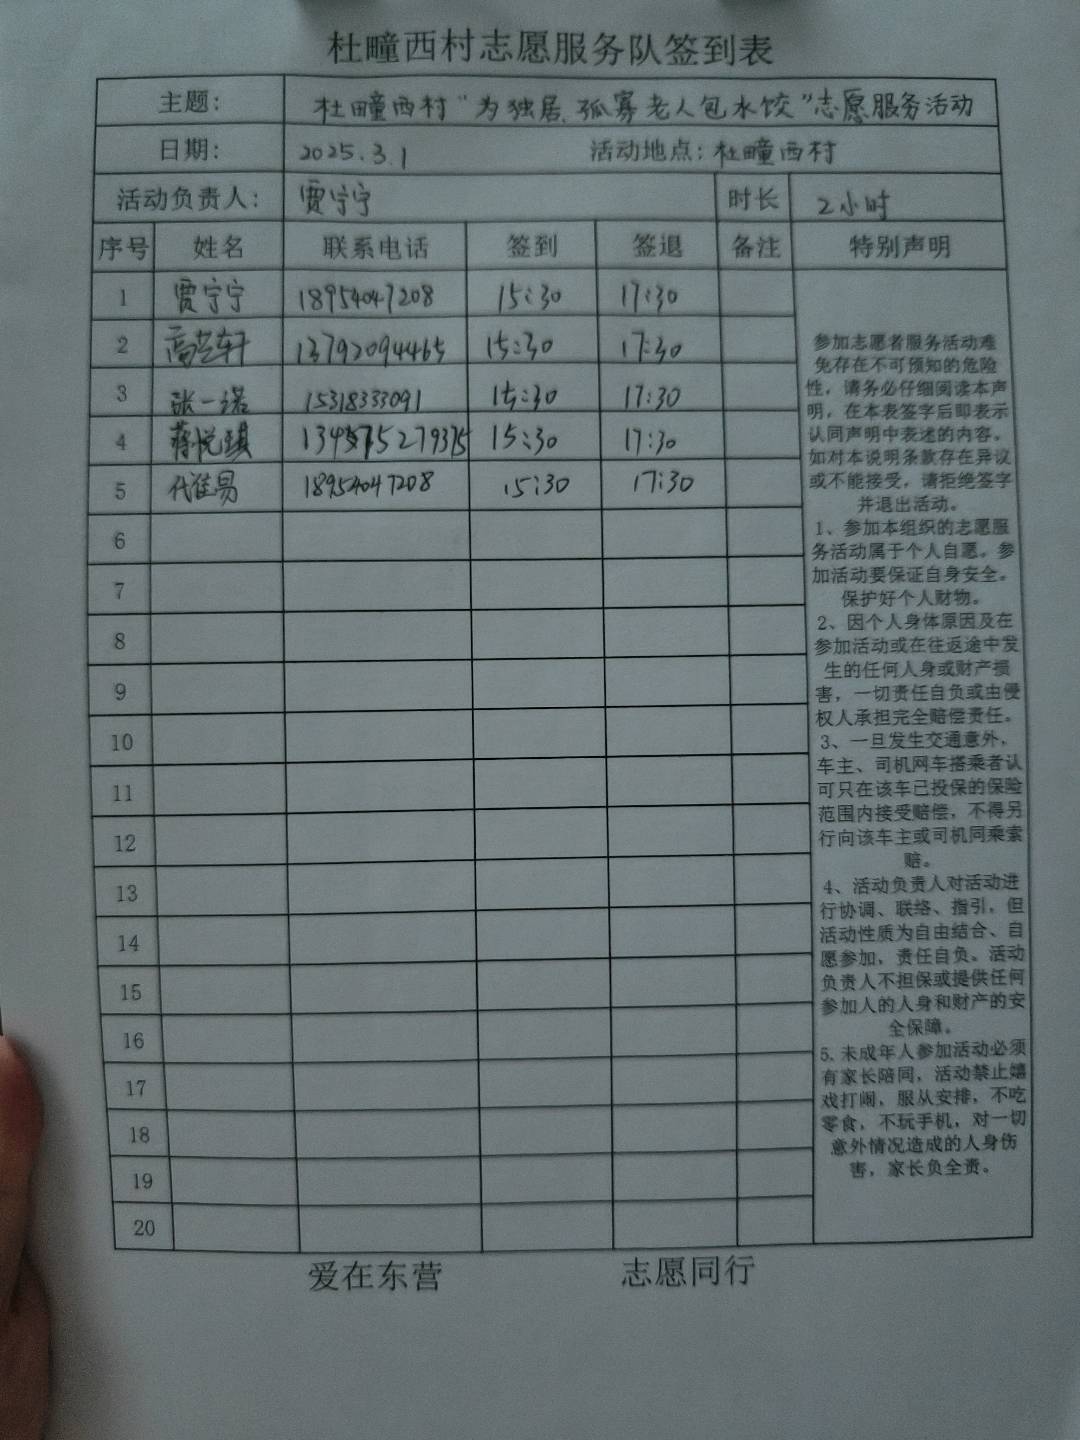 杜疃西村志愿服务队签到表
主题： 杜疃西村“为独居、孤寡老人包水饺”志愿服务活动
日期： 2025.3.1 活动地点：杜疃西村
活动负责人： 贾宁宁 时长 2小时
序号 姓名 联系电话 签到 签退 备注 特别声明
1 贾宁宁 18954047208 15:30 17:30
2 13792094465 15:30 17:30
3 张一诺 15318333091 15:30 17:30
4 蒋悦琪 15:30 17:30
5 代淮易 18954047208 15:30 17:30
6
7
8
9
10
11
12
13
14
15
16
17
18
19
20
参加志愿者服务活动难
免存在不可预知的危险
性，请务必仔细阅读本声
明，在本表签字后即表示
认同声明中表述的内容。
如对本说明条款存在异议
或不能接受，请拒绝签字
并退出活动。
1、参加本组织的志愿服
务活动属于个人自愿。参
加活动要保证自身安全。
保护好个人财物。
2、因个人身体原因及在
参加活动或在往返途中发
生的任何人身或财产损
害，一切责任自负或由侵
权人承担完全赔偿责任。
3、一旦发生交通意外，
车主、司机网车搭乘者认
可只在该车已投保的保险
范围内接受赔偿，不得另
行向该车主或司机同乘索
赔。
4、活动负责人对活动进
行协调、联络、指引，但
活动性质为自由结合、自
愿参加，责任自负。活动
负责人不担保或提供任何
参加人的人身和财产的安
全保障。
5.未成年人参加活动必须
有家长陪同，活动禁止嬉
戏打闹，服从安排，不吃
零食，不玩手机，对一切
意外情况造成的人身伤
害，家长负全责。
爱在东营 志愿同行